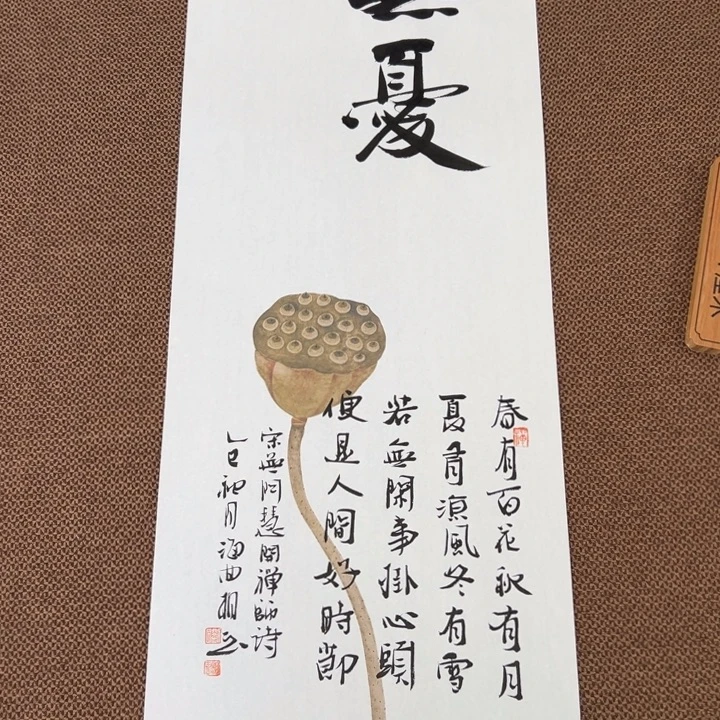 憂
春有百花秋有月
夏有涼風冬有雪
若無閑事掛心頭
便是人間好時節
宋無門慧開禪師詩
乙巳 月海曲